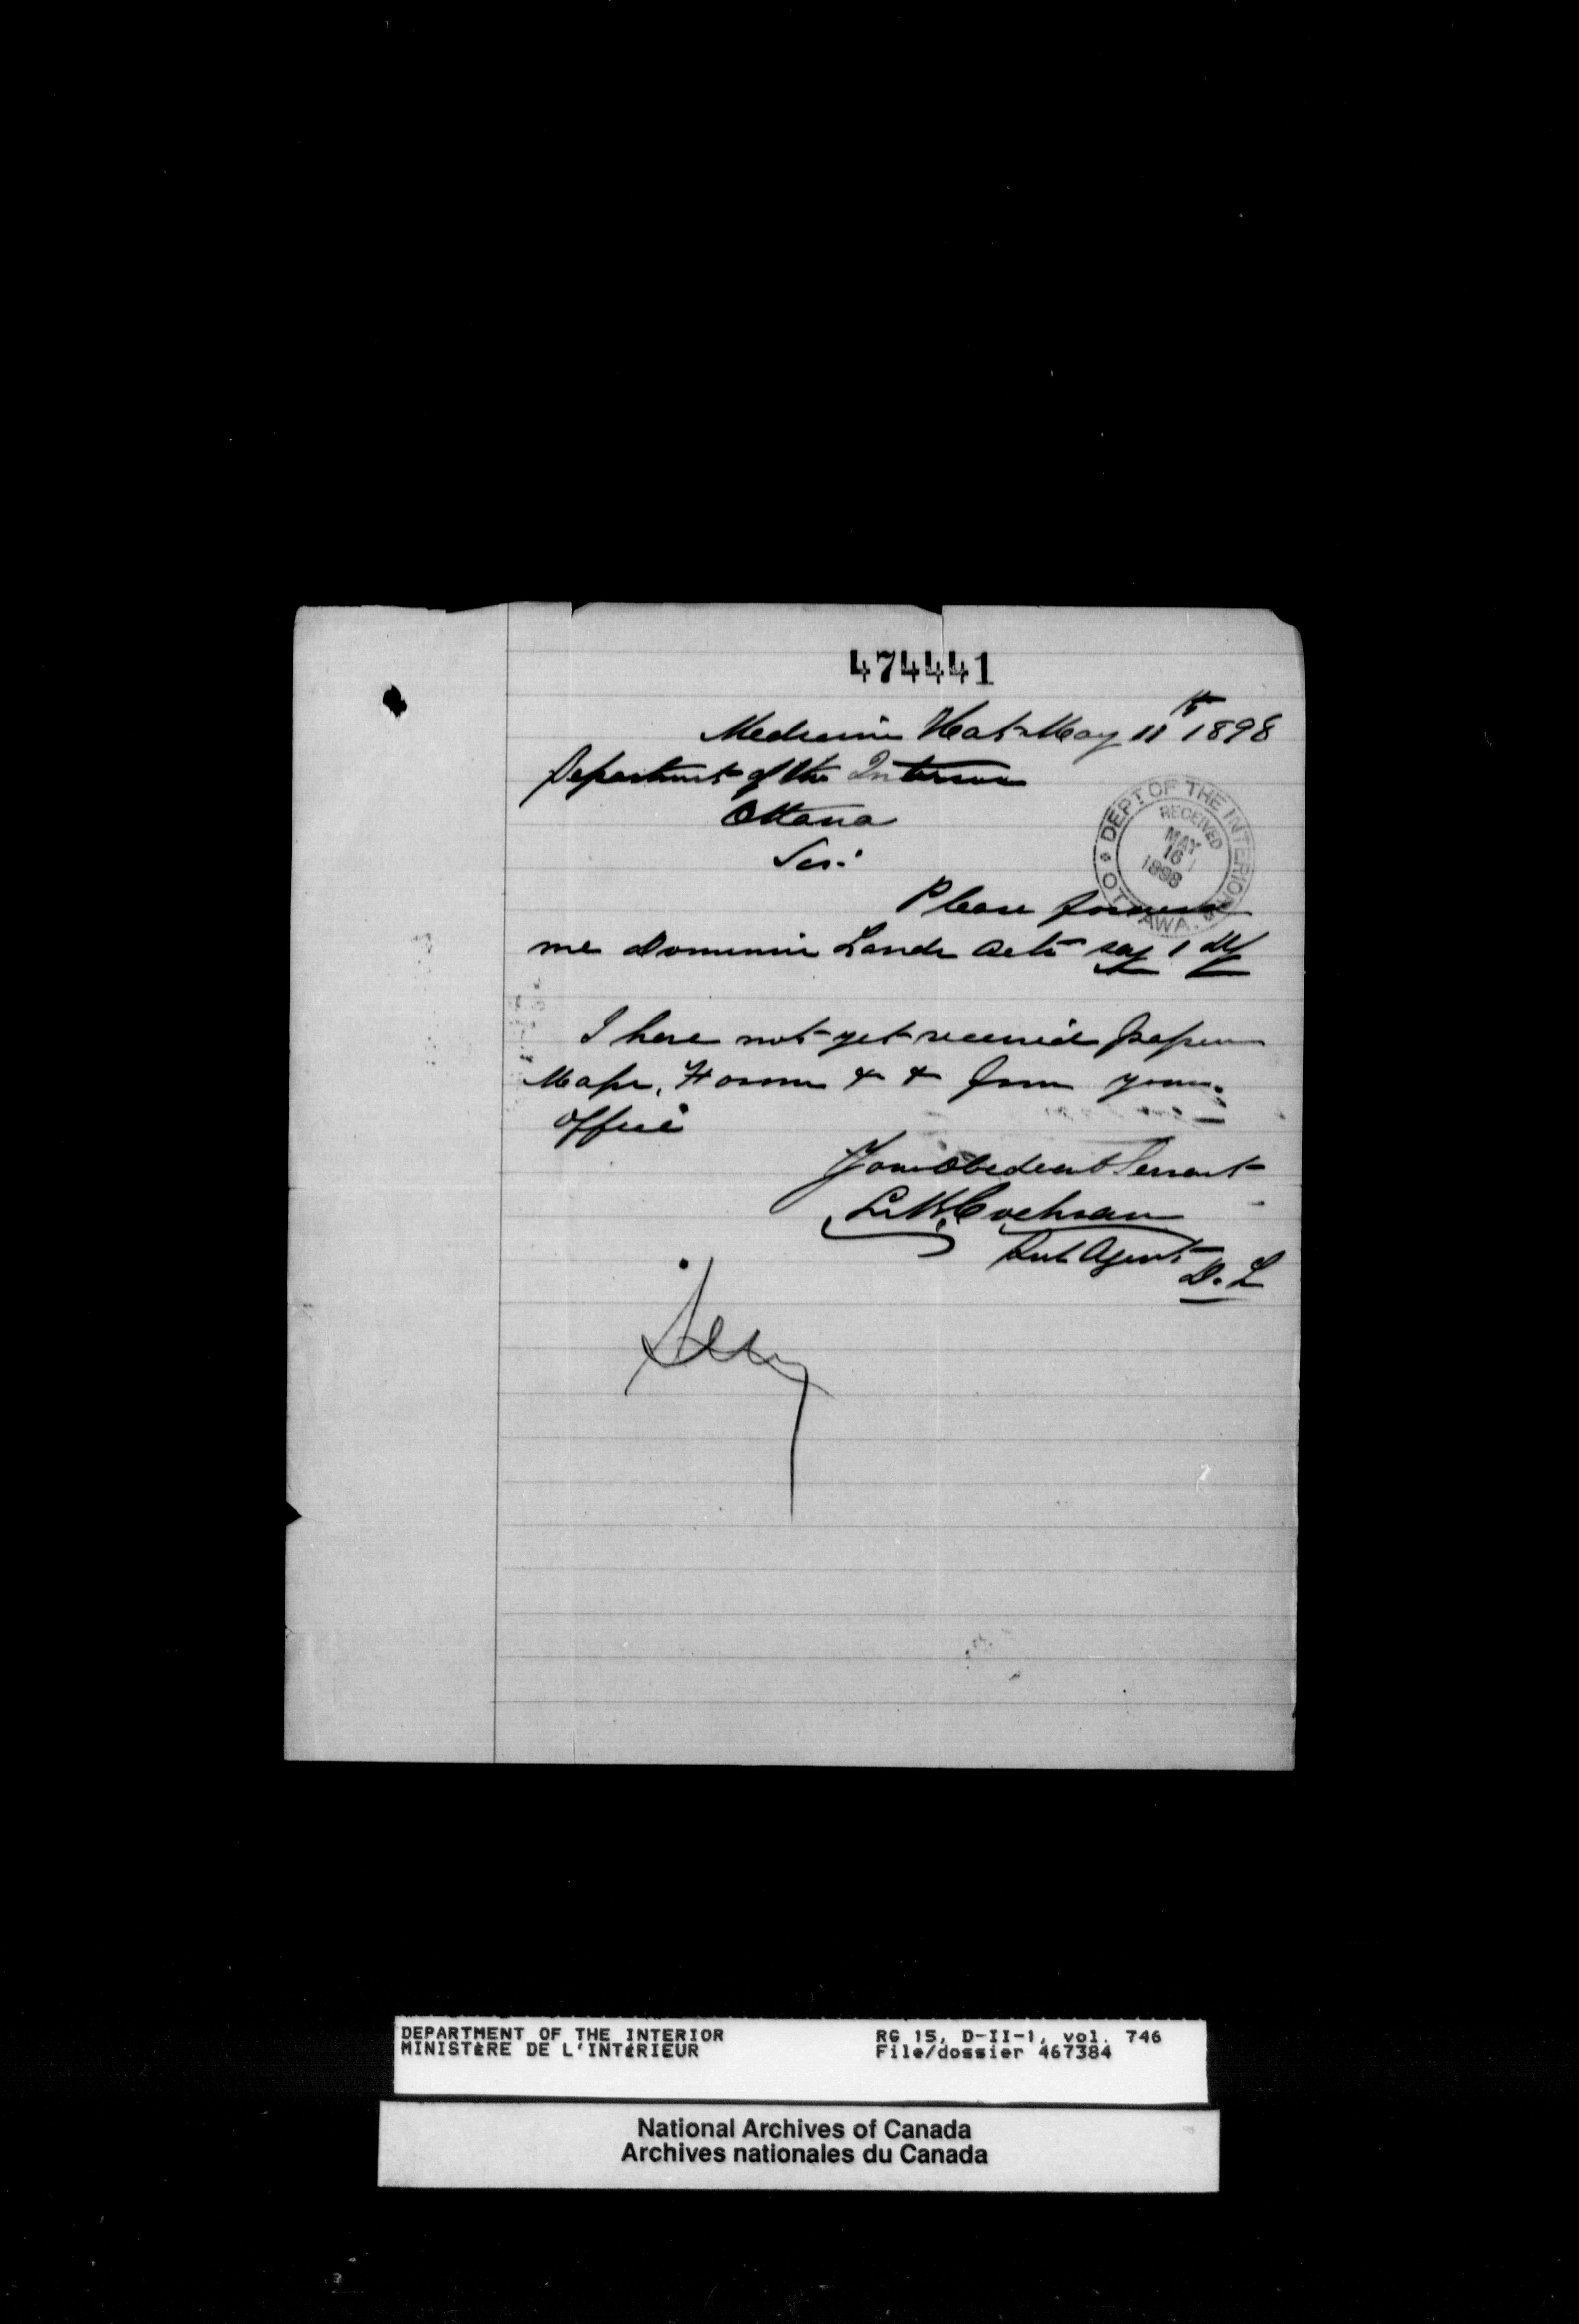 474441
Medicine Hat May 11th 1898
Department of the Interior
Ottawa
Sir.
DEPT. OF THE INTERIOR
RECEIVED
MAY
16
1898
OTTAWA.
Please forward
me Dominion Lands Acts say 1 dz
I have not yet received papers
Maps, Forms & & from your
office
Your Obedient Servant
L. B. Cochran
Sub Agent D. L
DEPARTMENT OF THE INTERIOR RG 15, D-II-1, vol. 746
MINISTÈRE DE L'INTÉRIEUR File/dossier 467384
National Archives of Canada
Archives nationales du Canada